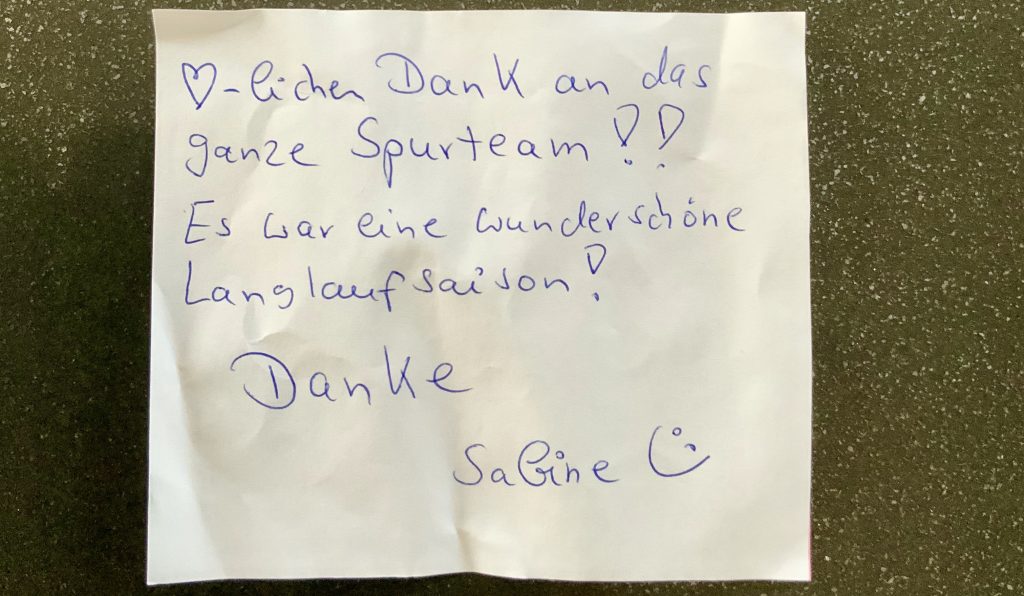 ♡-lichen Dank an das
ganze Spurteam!!
Es war eine wunderschöne
Langlaufsaison!
Danke
Sabine ☺